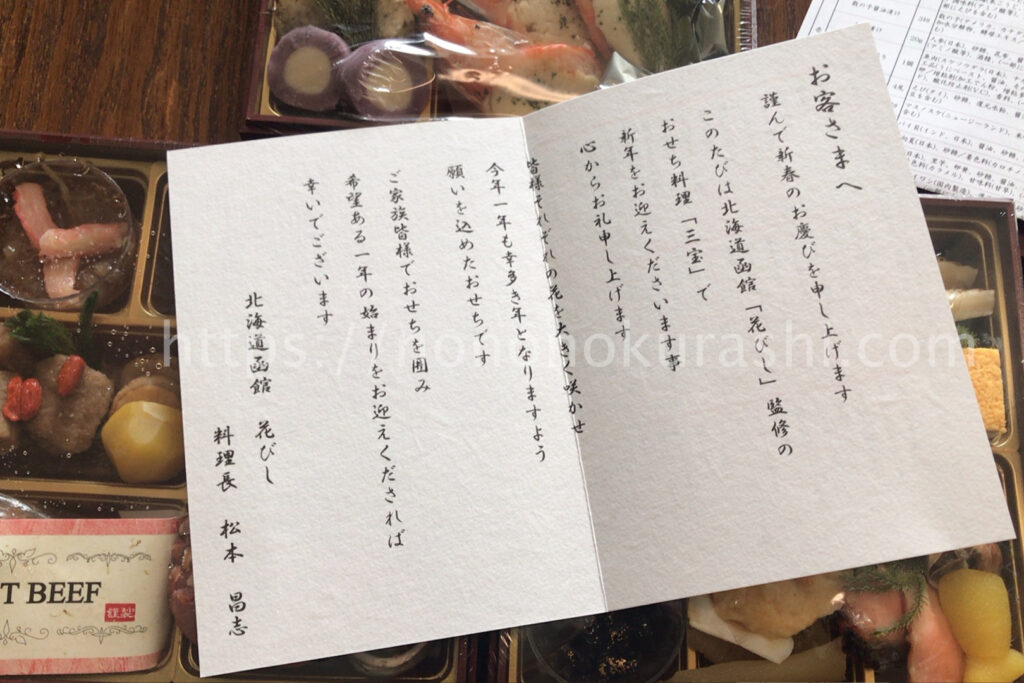 お客さまへ
謹んで新春のお慶びを申し上げます
このたびは北海道函館「花びし」監修の
おせち料理「三宝」で
新年をお迎えくださいます事
心からお礼申し上げます
皆様それぞれの花を大きく咲かせ
今年一年も幸多き年となりますよう
願いを込めたおせちです
ご家族皆様でおせちを囲み
希望ある一年の始まりをお迎えくだされば
幸いでございます
北海道函館 花びし
料理長 松本 昌志
T BEEF
謹製
https://monono​kurashi.com
数の子醤油漬け